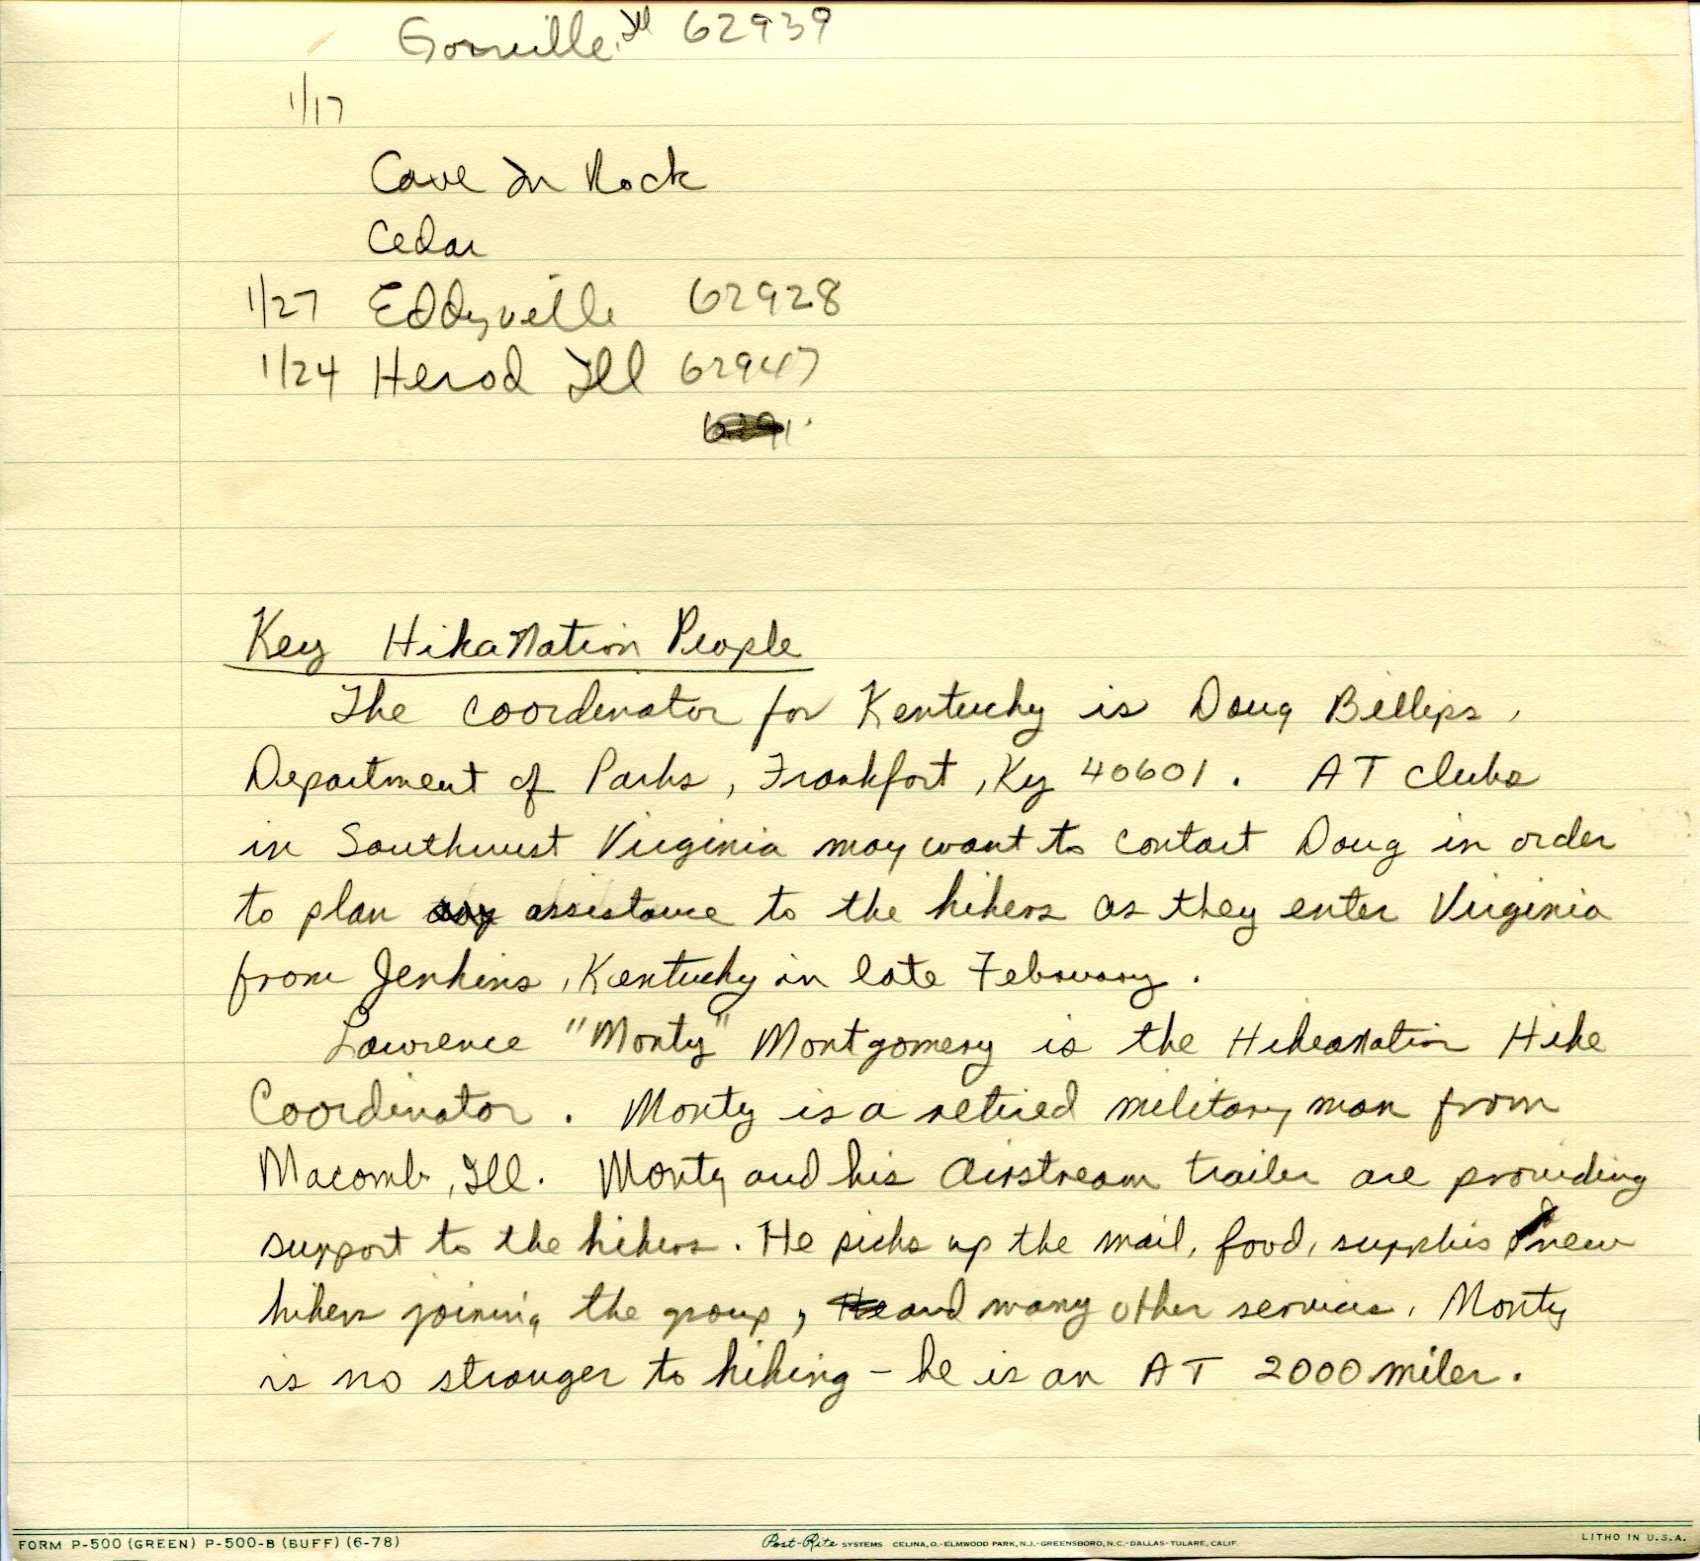 Goreville, Ill 62939
1/17
Cave In Rock
Cedar
1/27 Eddyville 62928
1/24 Herod Ill 62947
Key HikaNation People
The coordinator for Kentucky is Doug Billips,
Department of Parks, Frankfort, Ky 40601. AT clubs
in Southwest Virginia may want to contact Doug in order
to plan assistance to the hikers as they enter Virginia
from Jenkins, Kentucky in late February.
Lawrence "Monty" Montgomery is the HikeaNation Hike
Coordinator. Monty is a retired military man from
Macomb, Ill. Monty and his Airstream trailer are providing
support to the hikers. He picks up the mail, food, supplies new
hikers joining the group, and many other services. Monty
is no stranger to hiking - he is an AT 2000 miler.
FORM P-500 (GREEN) P-500-B (BUFF) (6-78) Post-Rite SYSTEMS CELINA, O.-ELMWOOD PARK, N.J.-GREENSBORO, N.C.-DALLAS-TULARE, CALIF. LITHO IN U.S.A.